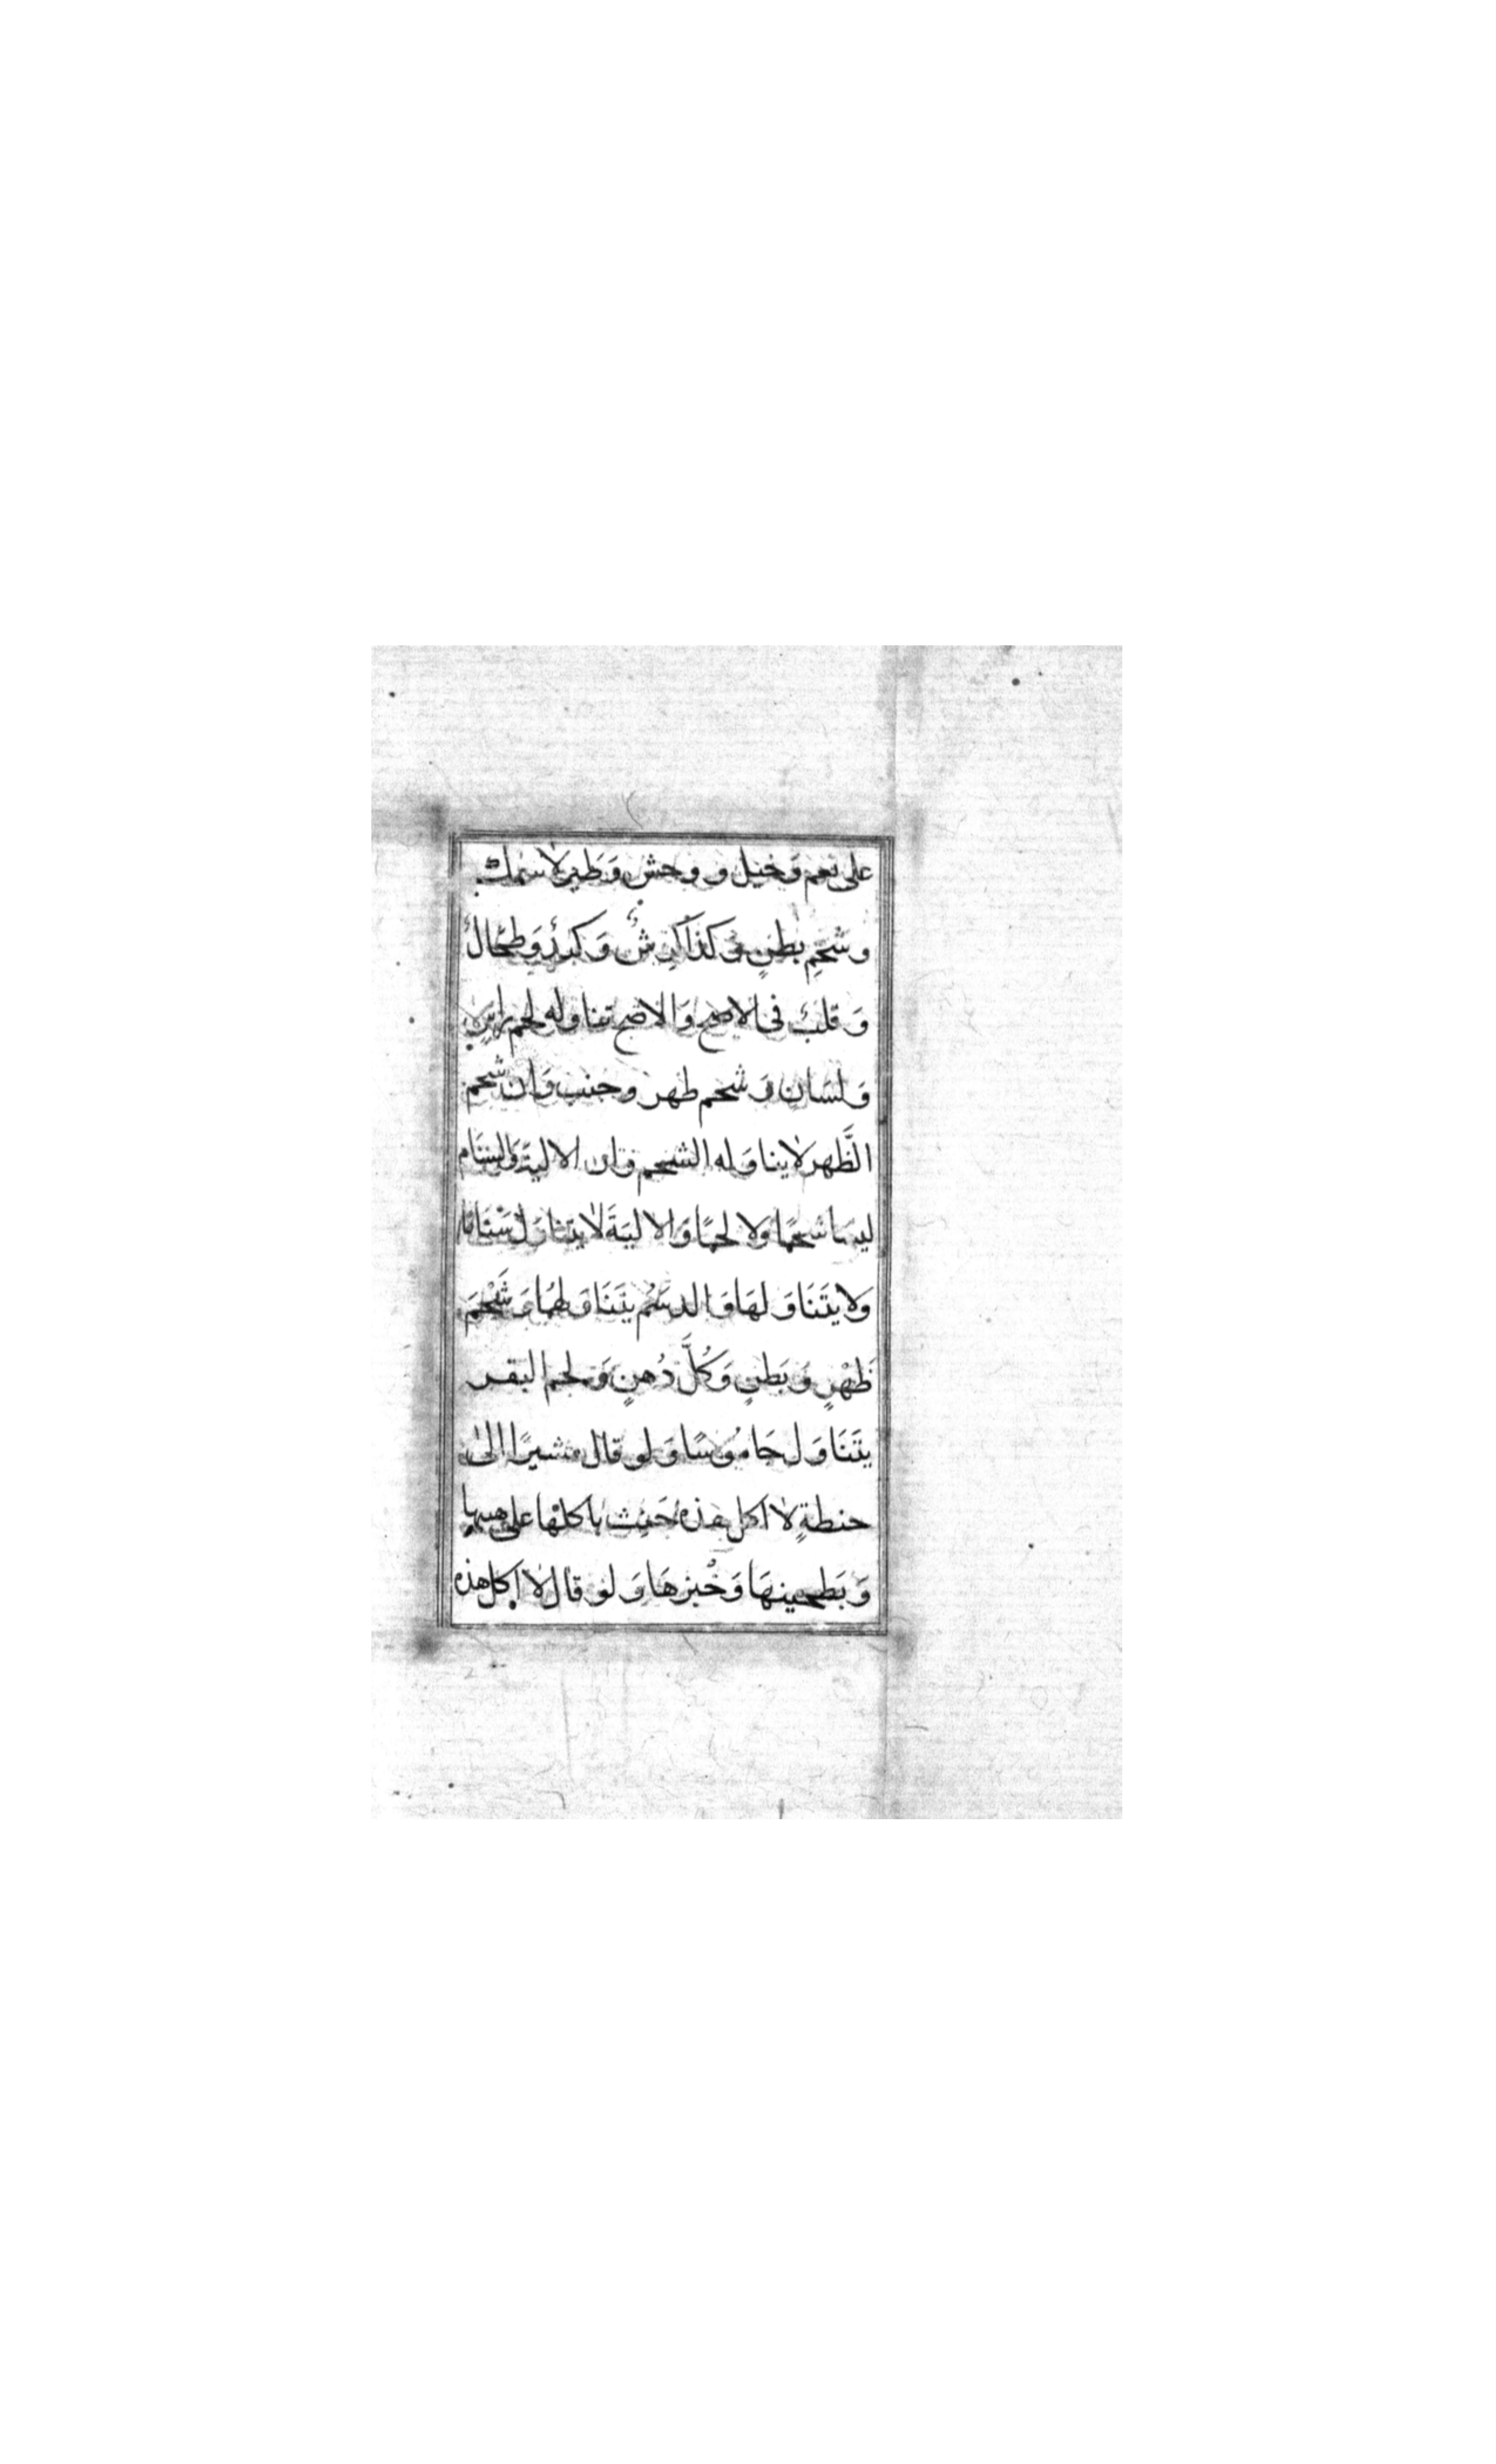 على نعم وَخيل و وحش وَطير لا سمك
وشحمِ بطنٍ وَكذا كرشٌ وَكبدٌ وَطحَالٌ
وَقلبٌ فى الاصح وَالاصح تناوله لحم راسٍ
وَلسَان وَشحم ظهر وجنب وَان شحم
الظَّهر لا يتناوَله الشحم وان الالية وَالسنَام
ليسَا شحمًا ولا لحمًا وَالاليَة لا يتناوَل سَنَامًا
وَلا يتَنَاوَلهَا وَالدسَمُ يتَنَاوَلهُمَا وَشَحْمَ
ظَهْرٍ وَبَطنٍ وَكُلَّ دُهنٍ وَلحم البقر
يتَنَاوَل جَامُوسًا وَلو قال مشيرًا الىٰ
حنطةٍ لا اكل هذه حَنِث باكلهَا على هيئتها
وَبَطحينهَا وَخُبزهَا وَلو قال لا اكل هذه